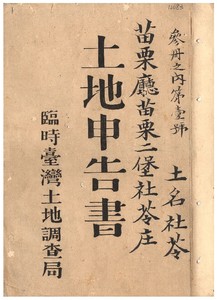 參册之內第壹號
土名社苓
苗栗廳苗栗二堡社苓庄
土地申告書
臨時臺灣土地調查局